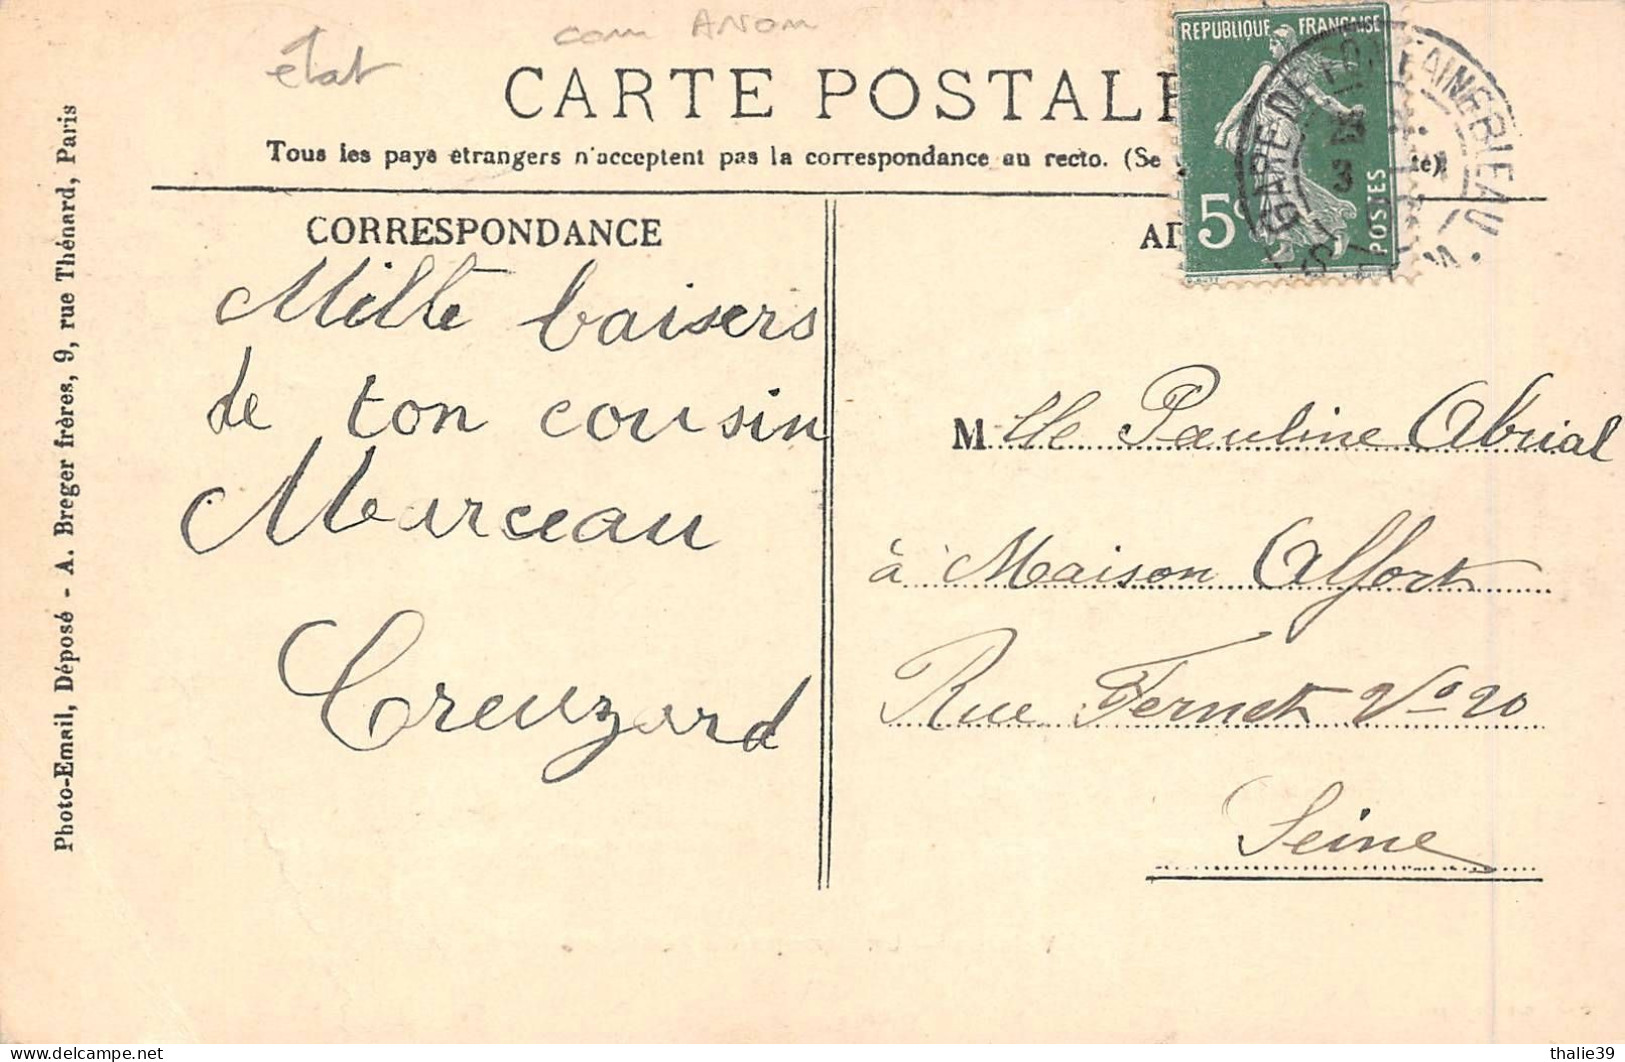 état
com ANOM
CARTE POSTALE
Tous les pays étrangers n'acceptent pas la correspondance au recto. (Se
té)
RÉPUBLIQUE FRANÇAISE
5c
POSTES
GARE DE FONTAINEBLEAU
3
CORRESPONDANCE
Mille baisers
de ton cousin
Marceau
Creuzard
AD
Mlle Pauline Abrial
à Maison Alfort
Rue Fernet No 20
Seine
Photo-Email, Déposé - A. Breger frères, 9, rue Thénard, Paris
delcampe.net
thalie39